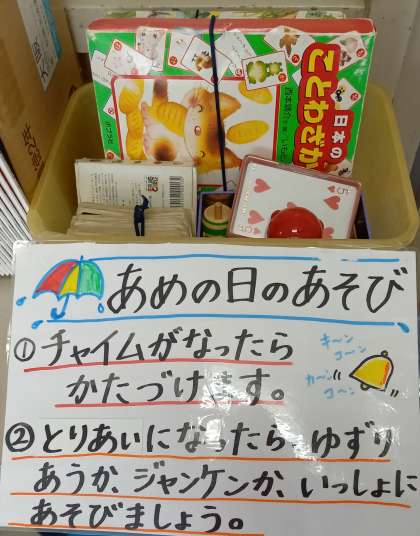 日本の
ことわざか
ポプラ社
5
あめの日のあそび
① チャイムがなったら
かたづけます。
キ〜ン
コ〜ン
カ〜ン
コ〜ン
② とりあいになったら ゆずり
あうか、ジャンケンか、いっしょに
あそびましょう。